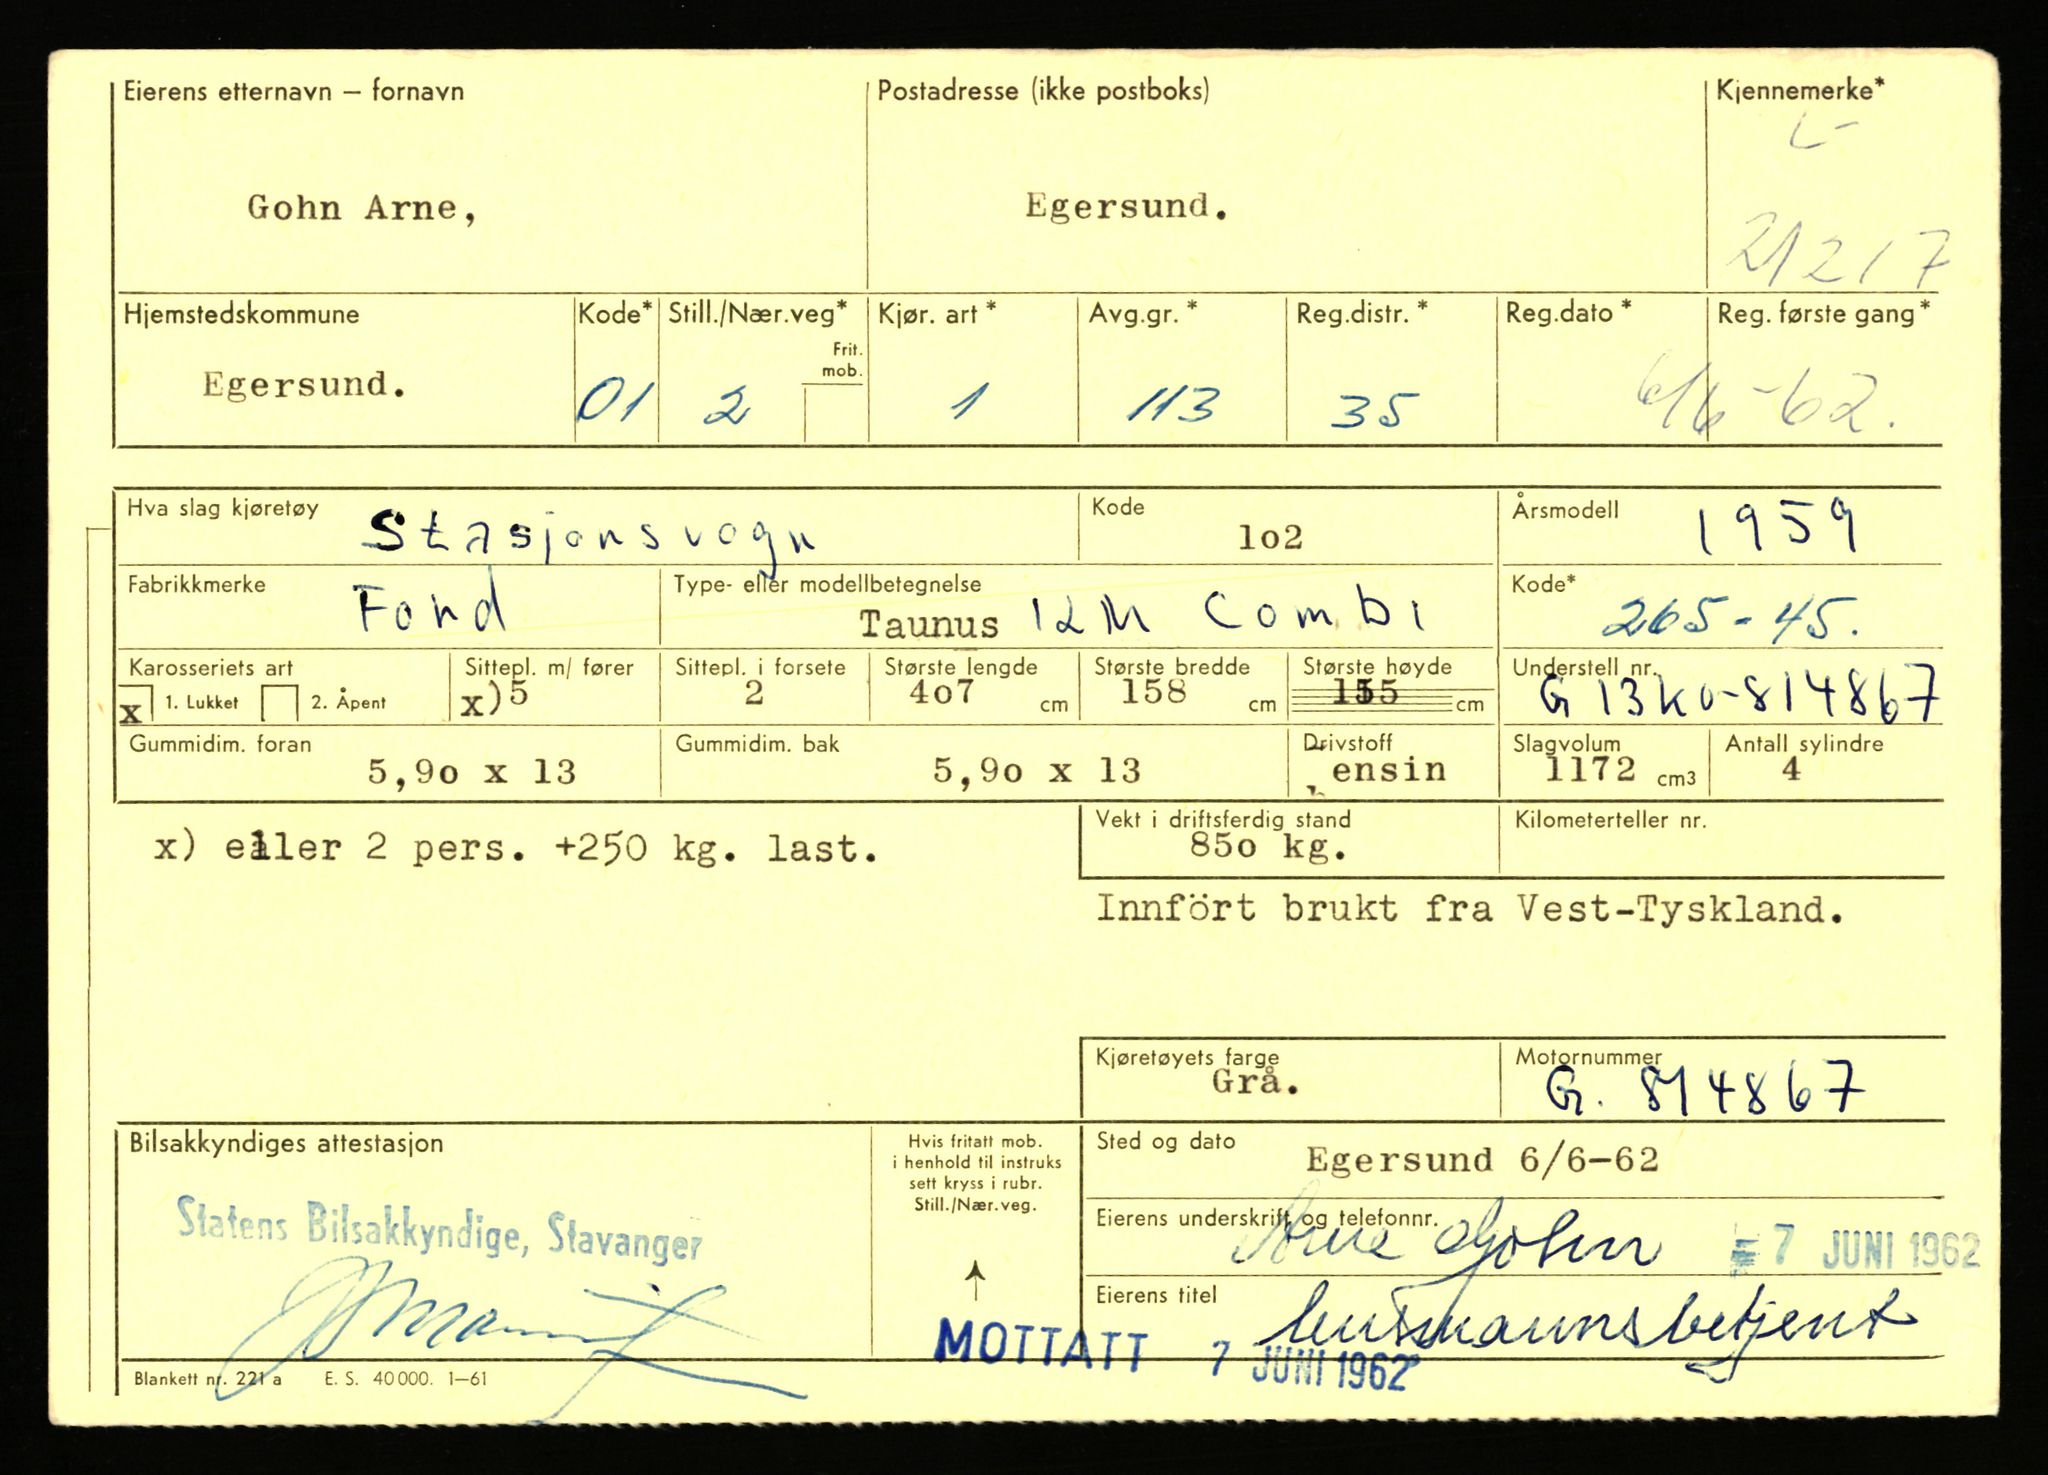 Eierens etternavn – fornavn Postadresse (ikke postboks) Kjennemerke*
L-
Gohn Arne, Egersund.
21217
Hjemstedskommune Kode* Still./Nær.veg* Kjør. art * Avg.gr. * Reg.distr. * Reg.dato * Reg. første gang*
Frit.
mob.
Egersund. 01 2 1 113 35 6/6-62.
Hva slag kjøretøy Stasjonsvogn Kode 1o2 Årsmodell 1959
Fabrikkmerke Ford Type- eller modellbetegnelse Taunus 12M Combi Kode* 265-45.
Karosseriets art Sittepl. m/ fører Sittepl. i forsete Største lengde Største bredde Største høyde Understell nr.
x 1. Lukket 2. Åpent x) 5 2 4o7 cm 158 cm 155 cm G13KU-814867
Gummidim. foran Gummidim. bak Drivstoff Slagvolum Antall sylindre
5,9o x 13 5,9o x 13 bensin 1172 cm3 4
Vekt i driftsferdig stand Kilometerteller nr.
x) eller 2 pers. +250 kg. last. 85o kg.
Innfört brukt fra Vest-Tyskland.
Kjøretøyets farge Motornummer
Grå. G. 814867
Bilsakkyndiges attestasjon Hvis fritatt mob. Sted og dato
i henhold til instruks Egersund 6/6-62
sett kryss i rubr.
Still./Nær.veg.
Statens Bilsakkyndige, Stavanger
Eierens underskrift og telefonnr.
Arne Gohn 7 JUNI 1962
Eierens titel lensmannsbetjent
MOTTATT 7 JUNI 1962
Blankett nr. 221 a E. S. 40 000. 1–61